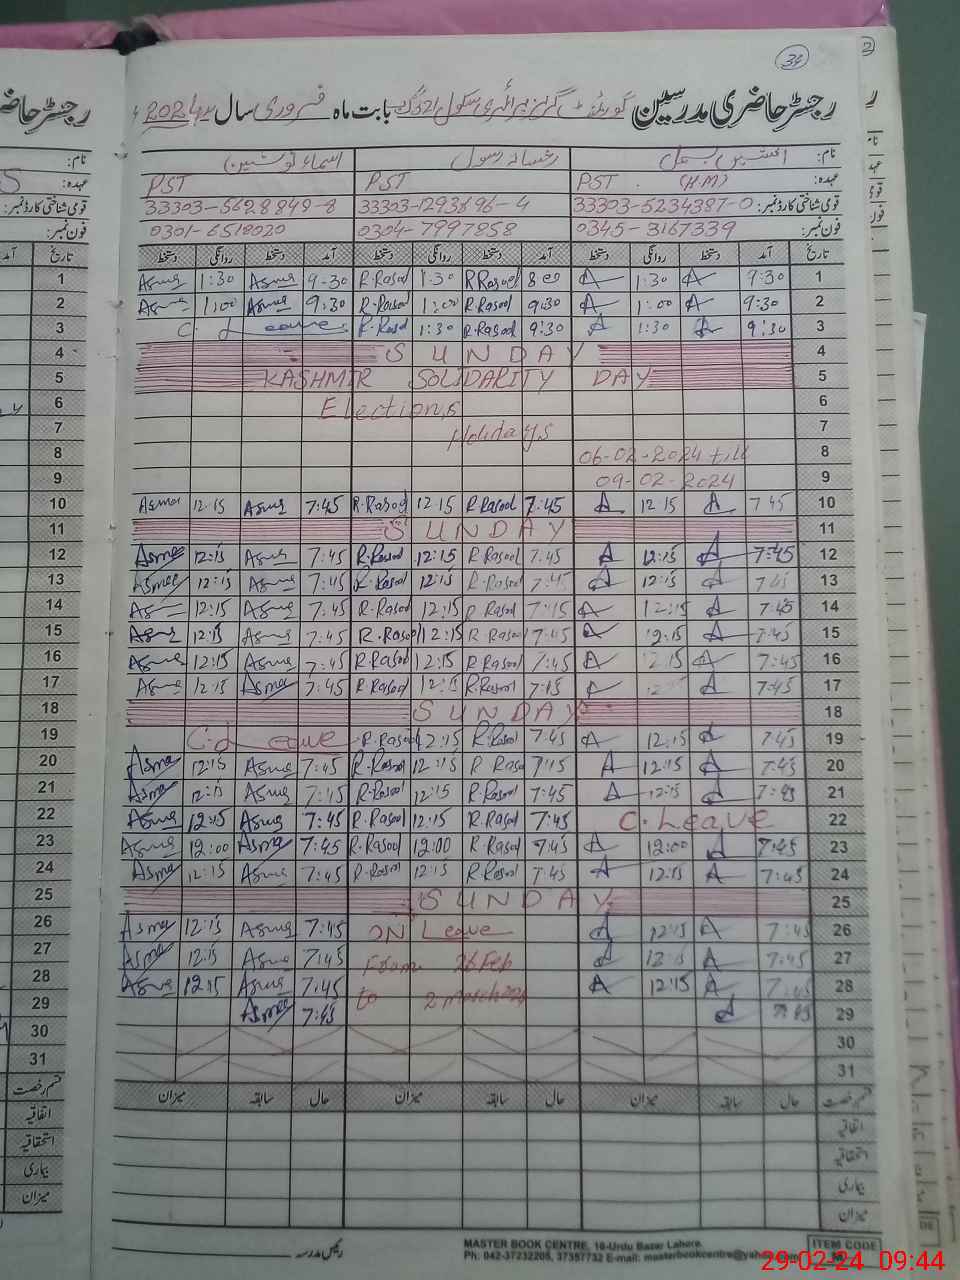 34
رجسٹر حاضری مدرسین گورنمنٹ گرلز پرائمری سکول بابت ماہ فروری سال 2024ء
نام: رخسانہ رسول اسماء نوشین
عہدہ: PST (HM) PST PST
قومی شناختی کارڈ نمبر: 33303-5234387-0 33303-1293896-4 33303-5628849-8
فون نمبر: 0345-3167339 0304-7997858 0301-6518020
تاریخ آمد دستخط روانگی دستخط آمد دستخط روانگی دستخط آمد دستخط روانگی دستخط
Asma 1:30 Asma 9:30 R.Rasool 1:30 R Rasool 8:00 A 1:30 A 9:30 1
Asma 1:00 Asma 9:30 R.Rasool 1:00 R.Rasool 9:30 A 1:00 A 9:30 2
C. Leave R.Rasol 1:30 R.Rasool 9:30 A 1:30 A 9:30 3
SUNDAY 4
KASHMIR SOLIDARITY DAY 5
Elections 6
Holidays 7
06-02-2024 till 8
09-02-2024 9
Asma 12:15 Asma 7:45 R.Rasool 12:15 R.Rasool 7:45 A 12:15 A 7:45 10
SUNDAY 11
Asma 12:15 Asma 7:45 R.Rasool 12:15 R.Rasool 7:45 A 12:15 A 7:45 12
Asma 12:15 Asma 7:45 R.Rasool 12:15 R.Rasool 7:45 A 12:15 A 7:45 13
Asma 12:15 Asma 7:45 R.Rasool 12:15 R Rasool 7:15 A 12:15 A 7:45 14
Asma 12:15 Asma 7:45 R.Rasool 12:15 R.Rasool 7:45 A 12:15 A 7:45 15
Asma 12:15 Asma 7:45 R.Rasool 12:15 R.Rasool 7:45 A 12:15 A 7:45 16
Asma 12:15 Asma 7:45 R.Rasool 12:15 R.Rasool 7:15 A A 7:45 17
SUNDAY 18
C. Leave R.Rasool 12:15 R.Rasol 7:45 A 12:15 A 7:45 19
Asma 12:15 Asma 7:45 R.Rasool 12:15 R Rasool 7:15 A 12:15 A 7:45 20
Asma 12:15 Asma 7:45 R.Rasool 12:15 R.Rasool 7:45 A 12:15 A 7:45 21
Asma 12:15 Asma 7:45 R.Rasool 12:15 R.Rasol 7:45 C. Leave 22
Asma 12:00 Asma 7:45 R.Rasool 12:00 R.Rasol 7:45 A 12:00 A 7:45 23
Asma 12:15 Asma 7:45 R.Rasool 12:15 R.Rasol 7:45 A 12:15 A 7:45 24
SUNDAY 25
Asma 12:15 Asma 7:45 ON Leave A 12:15 A 7:45 26
Asma 12:15 Asma 7:45 From 26 Feb A 12:15 A 7:45 27
Asma 12:15 Asma 7:45 to 2 march A 12:15 A 7:45 28
Asma 7:45 A 7:45 29
30
31
قسم رخصت حال سابقہ میزان حال سابقہ میزان حال سابقہ میزان
اتفاقیہ
استحقاقیہ
بیماری
میزان
رئیس مدرسہ
MASTER BOOK CENTRE, 16-Urdu Bazar Lahore.
Ph: 042-37232205, 37357732 E-mail: masterbookcentre@yahoo.com
ITEM CODE
29-02-24 09:44